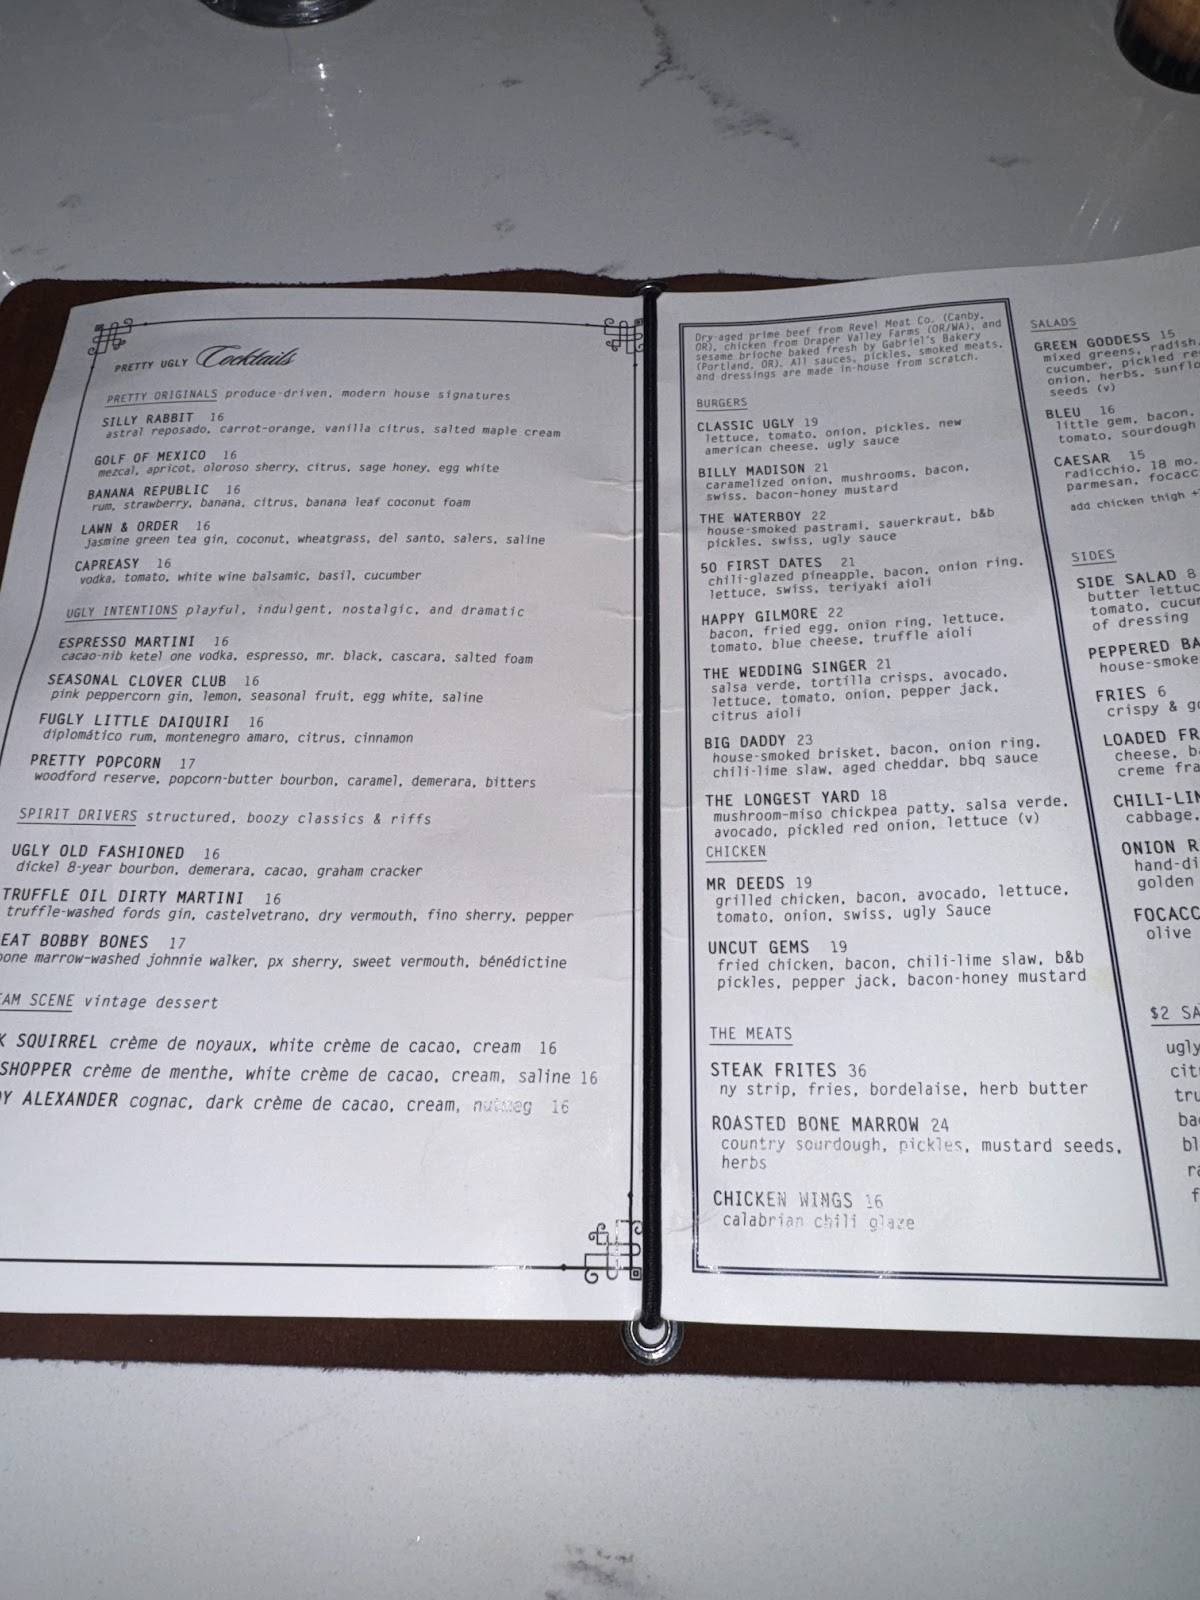 PRETTY UGLY Cocktails
PRETTY ORIGINALS produce-driven, modern house signatures
SILLY RABBIT 16
astral reposado, carrot-orange, vanilla citrus, salted maple cream
GOLF OF MEXICO 16
mezcal, apricot, oloroso sherry, citrus, sage honey, egg white
BANANA REPUBLIC 16
rum, strawberry, banana, citrus, banana leaf coconut foam
LAWN & ORDER 16
jasmine green tea gin, coconut, wheatgrass, del santo, salers, saline
CAPREASY 16
vodka, tomato, white wine balsamic, basil, cucumber
UGLY INTENTIONS playful, indulgent, nostalgic, and dramatic
ESPRESSO MARTINI 16
cacao-nib ketel one vodka, espresso, mr. black, cascara, salted foam
SEASONAL CLOVER CLUB 16
pink peppercorn gin, lemon, seasonal fruit, egg white, saline
FUGLY LITTLE DAIQUIRI 16
diplomático rum, montenegro amaro, citrus, cinnamon
PRETTY POPCORN 17
woodford reserve, popcorn-butter bourbon, caramel, demerara, bitters
SPIRIT DRIVERS structured, boozy classics & riffs
UGLY OLD FASHIONED 16
dickel 8-year bourbon, demerara, cacao, graham cracker
TRUFFLE OIL DIRTY MARTINI 16
truffle-washed fords gin, castelvetrano, dry vermouth, fino sherry, pepper
EAT BOBBY BONES 17
bone marrow-washed johnnie walker, px sherry, sweet vermouth, bénédictine
AM SCENE vintage dessert
K SQUIRREL crème de noyaux, white crème de cacao, cream 16
SHOPPER crème de menthe, white crème de cacao, cream, saline 16
Y ALEXANDER cognac, dark crème de cacao, cream, nutmeg 16
Dry-aged prime beef from Revel Meat Co. (Canby,
OR), chicken from Draper Valley Farms (OR/WA), and
sesame brioche baked fresh by Gabriel's Bakery
(Portland, OR). All sauces, pickles, smoked meats,
and dressings are made in-house from scratch.
BURGERS
CLASSIC UGLY 19
lettuce, tomato, onion, pickles, new
american cheese, ugly sauce
BILLY MADISON 21
caramelized onion, mushrooms, bacon,
swiss, bacon-honey mustard
THE WATERBOY 22
house-smoked pastrami, sauerkraut, b&b
pickles, swiss, ugly sauce
50 FIRST DATES 21
chili-glazed pineapple, bacon, onion ring,
lettuce, swiss, teriyaki aioli
HAPPY GILMORE 22
bacon, fried egg, onion ring, lettuce,
tomato, blue cheese, truffle aioli
THE WEDDING SINGER 21
salsa verde, tortilla crisps, avocado,
lettuce, tomato, onion, pepper jack,
citrus aioli
BIG DADDY 23
house-smoked brisket, bacon, onion ring,
chili-lime slaw, aged cheddar, bbq sauce
THE LONGEST YARD 18
mushroom-miso chickpea patty, salsa verde,
avocado, pickled red onion, lettuce (v)
CHICKEN
MR DEEDS 19
grilled chicken, bacon, avocado, lettuce,
tomato, onion, swiss, ugly Sauce
UNCUT GEMS 19
fried chicken, bacon, chili-lime slaw, b&b
pickles, pepper jack, bacon-honey mustard
THE MEATS
STEAK FRITES 36
ny strip, fries, bordelaise, herb butter
ROASTED BONE MARROW 24
country sourdough, pickles, mustard seeds,
herbs
CHICKEN WINGS 16
calabrian chili glaze
SALADS
GREEN GODDESS 15
mixed greens, radish,
cucumber, pickled re
onion, herbs, sunflo
seeds (v)
BLEU 16
little gem, bacon,
tomato, sourdough
CAESAR 15
radicchio, 18 mo.
parmesan, focacc
add chicken thigh +
SIDES
SIDE SALAD 8
butter lettuc
tomato, cucu
of dressing
PEPPERED BA
house-smoke
FRIES 6
crispy & go
LOADED FR
cheese, b
creme fra
CHILI-LIM
cabbage,
ONION R
hand-di
golden
FOCACC
olive
$2 SA
ugly
citr
tru
ba
bl
ra
f